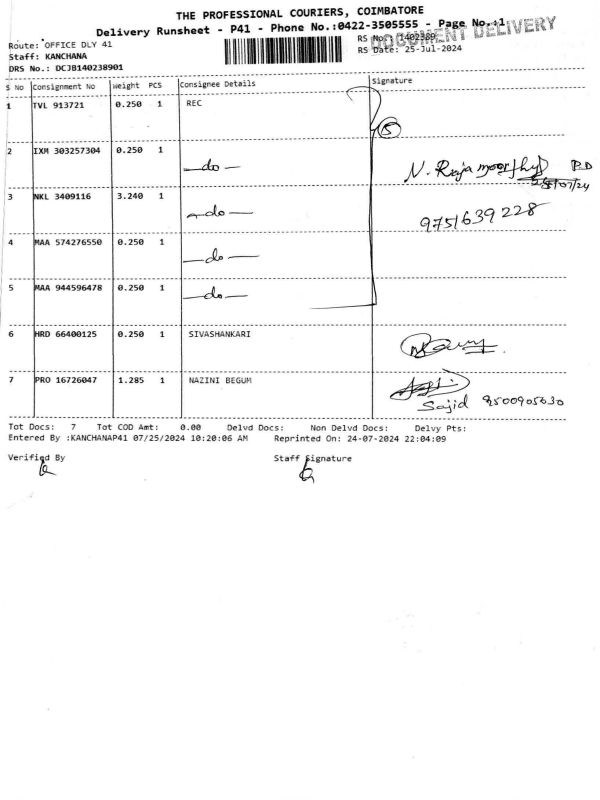 THE PROFESSIONAL COURIERS, COIMBATORE
Delivery Runsheet - P41 - Phone No.:0422-3505555 - Page No.:1
DOCUMENT DELIVERY
Route: OFFICE DLY 41
RS No: 1402389
Staff: KANCHANA
RS Date: 25-Jul-2024
DRS No.: DCJB140238901
S No Consignment No Weight PCS Consignee Details Signature
1 TVL 913721 0.250 1 REC
5
2 IXM 303257304 0.250 1
—do— N. Raja moorthy
25/07/24
3 NKL 3409116 3.240 1
—do— 9751639228
4 MAA 574276550 0.250 1
—do—
5 MAA 944596478 0.250 1
—do—
6 HRD 66400125 0.250 1 SIVASHANKARI
7 PRO 16726047 1.285 1 NAZINI BEGUM
Sajid 9500905030
Tot Docs: 7 Tot COD Amt: 0.00 Delvd Docs: Non Delvd Docs: Delvy Pts:
Entered By :KANCHANAP41 07/25/2024 10:20:06 AM Reprinted On: 24-07-2024 22:04:09
Verified By Staff Signature